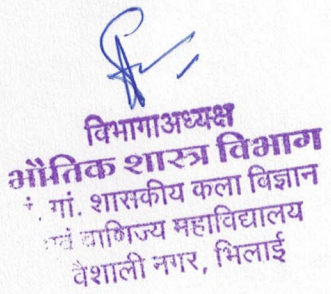 विभागाअध्यक्ष
भौतिक शास्त्र विभाग
गां. शासकीय कला विज्ञान
एवं वाणिज्य महाविद्यालय
वैशाली नगर, भिलाई